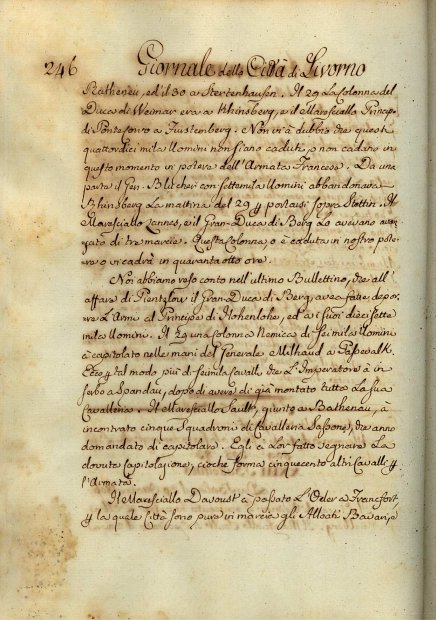 246 Giornale della Città di Livorno
Ratheneu, ed il 30 a Stertenhausen. Il 29 La Colonna del
Duca di Weimar era a Rhinsberg, e il Maresciallo Principe
di Pontecorvo a Fustemberg. Non vi à dubbio che questi
quattordici mila Uomini non siano caduti, o non cadano in
questo momento in potere dell'Armata Francese. Da una
parte il Gen. Blucher con settemila Uomini abbandonava
Rhinsberg La mattina del 29 p portarsi sopra Stettin. Il
Maresciallo Lannes, e il Gran-Duca di Berg Lo avevano avan
zato di tre marcie. Questa Colonna o è caduta in nostro pote
re o vi cadrà in quaranta otto ore.
Noi abbiamo reso conto nell'ultimo Bullettino, che all'
affare di Prentzlow il Gran-Duca di Berg, avea fatte depor
re L'Armi al Principe di Hohenlohe, ed a i suoi diecisette
mila Uomini. Il 29 una Colonna Nemica di seimila Uomini
à capitolato nelle mani del Generale Milhaud a Passewalk.
Ecco p tal modo più di seimila Cavalli che L'Imperatore à in
serbo a Spandau, dopo di avere di già montato tutta La sua
Cavalleria. Il Maresciallo Soult, giunto a Rathenau, à
incontrato cinque Squadroni di Cavalleria Sassone, che anno
domandato di capitolare. Egli à Lor fatto segnare La
dovuta Capitolazione, cioche forma cinquecento altri Cavalli p
l'Armata.
Il Maresciallo Davoust à passato L'Oder a Francfort,
p la quale Città sono pure in marcia gli Alleati Bavari, e